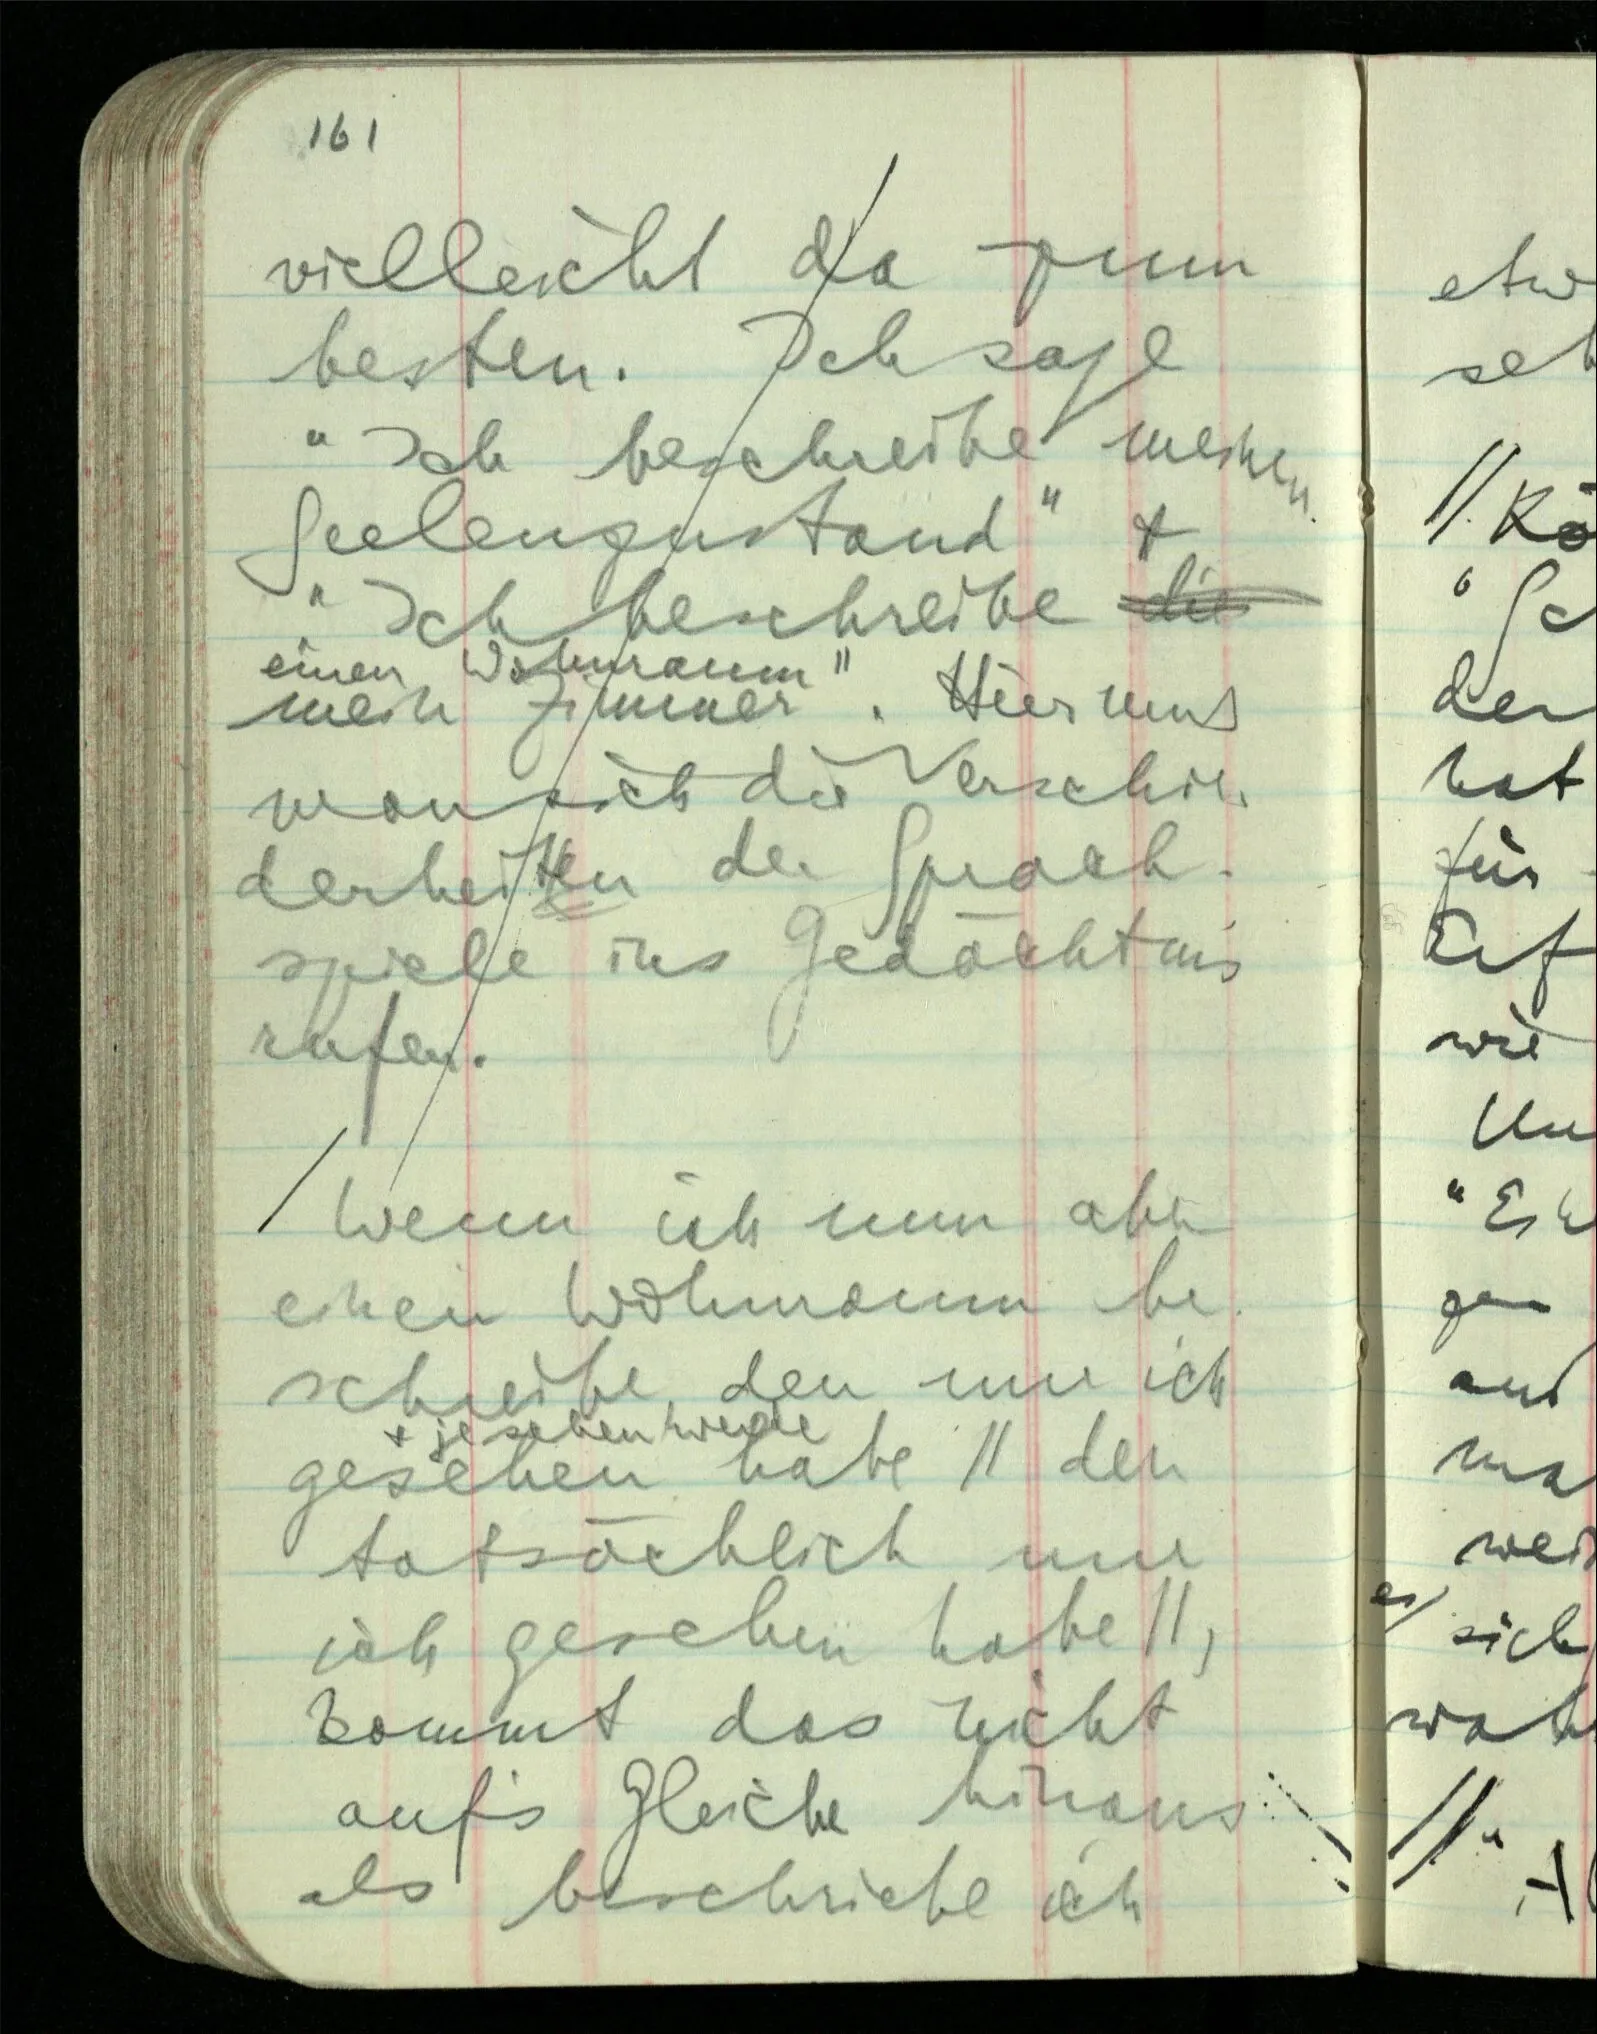 161
vielleicht da zum
besten. Ich sage
"Ich beschreibe meinen
Seelenzustand" +
"Ich beschreibe die
einen Wohnraum"
mein Zimmer". Hier muß
man sich die Verschie-
denheiten der Sprach-
spiele ins Gedächtnis
rufen.
/ Wenn ich nun aber
einen Wohnraum be-
schreibe, den nur ich
+ je sehen werde
gesehen habe // den
tatsächlich nur
ich gesehen habe //,
kommt das nicht
auf's Gleiche hinaus
als beschriebe ich
etw
seh
// Kö
"Sc
der
hat
für
wie
"Es
und
ma
es/ sich
//"